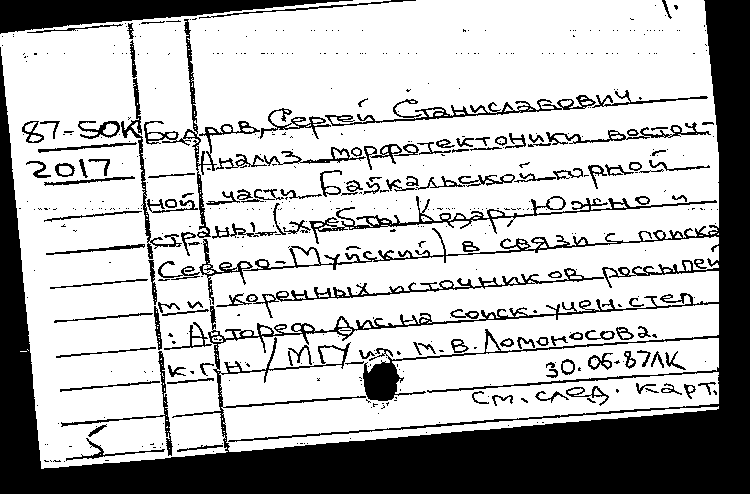 1.
87-50К Бодров, Сергей Станиславович.
2017 Анализ морфотектоники восточ-
ной части Байкальской горной
страны (хребты Кодар, Южно и
Северо-Муйский) в связи с поиска
ми коренных источников россыпей
: Автореф. дис. на соиск. учен. степ.
к.г.н. / МГУ им. М.В. Ломоносова.
30.06.87ЛК
См. след. карт.
5